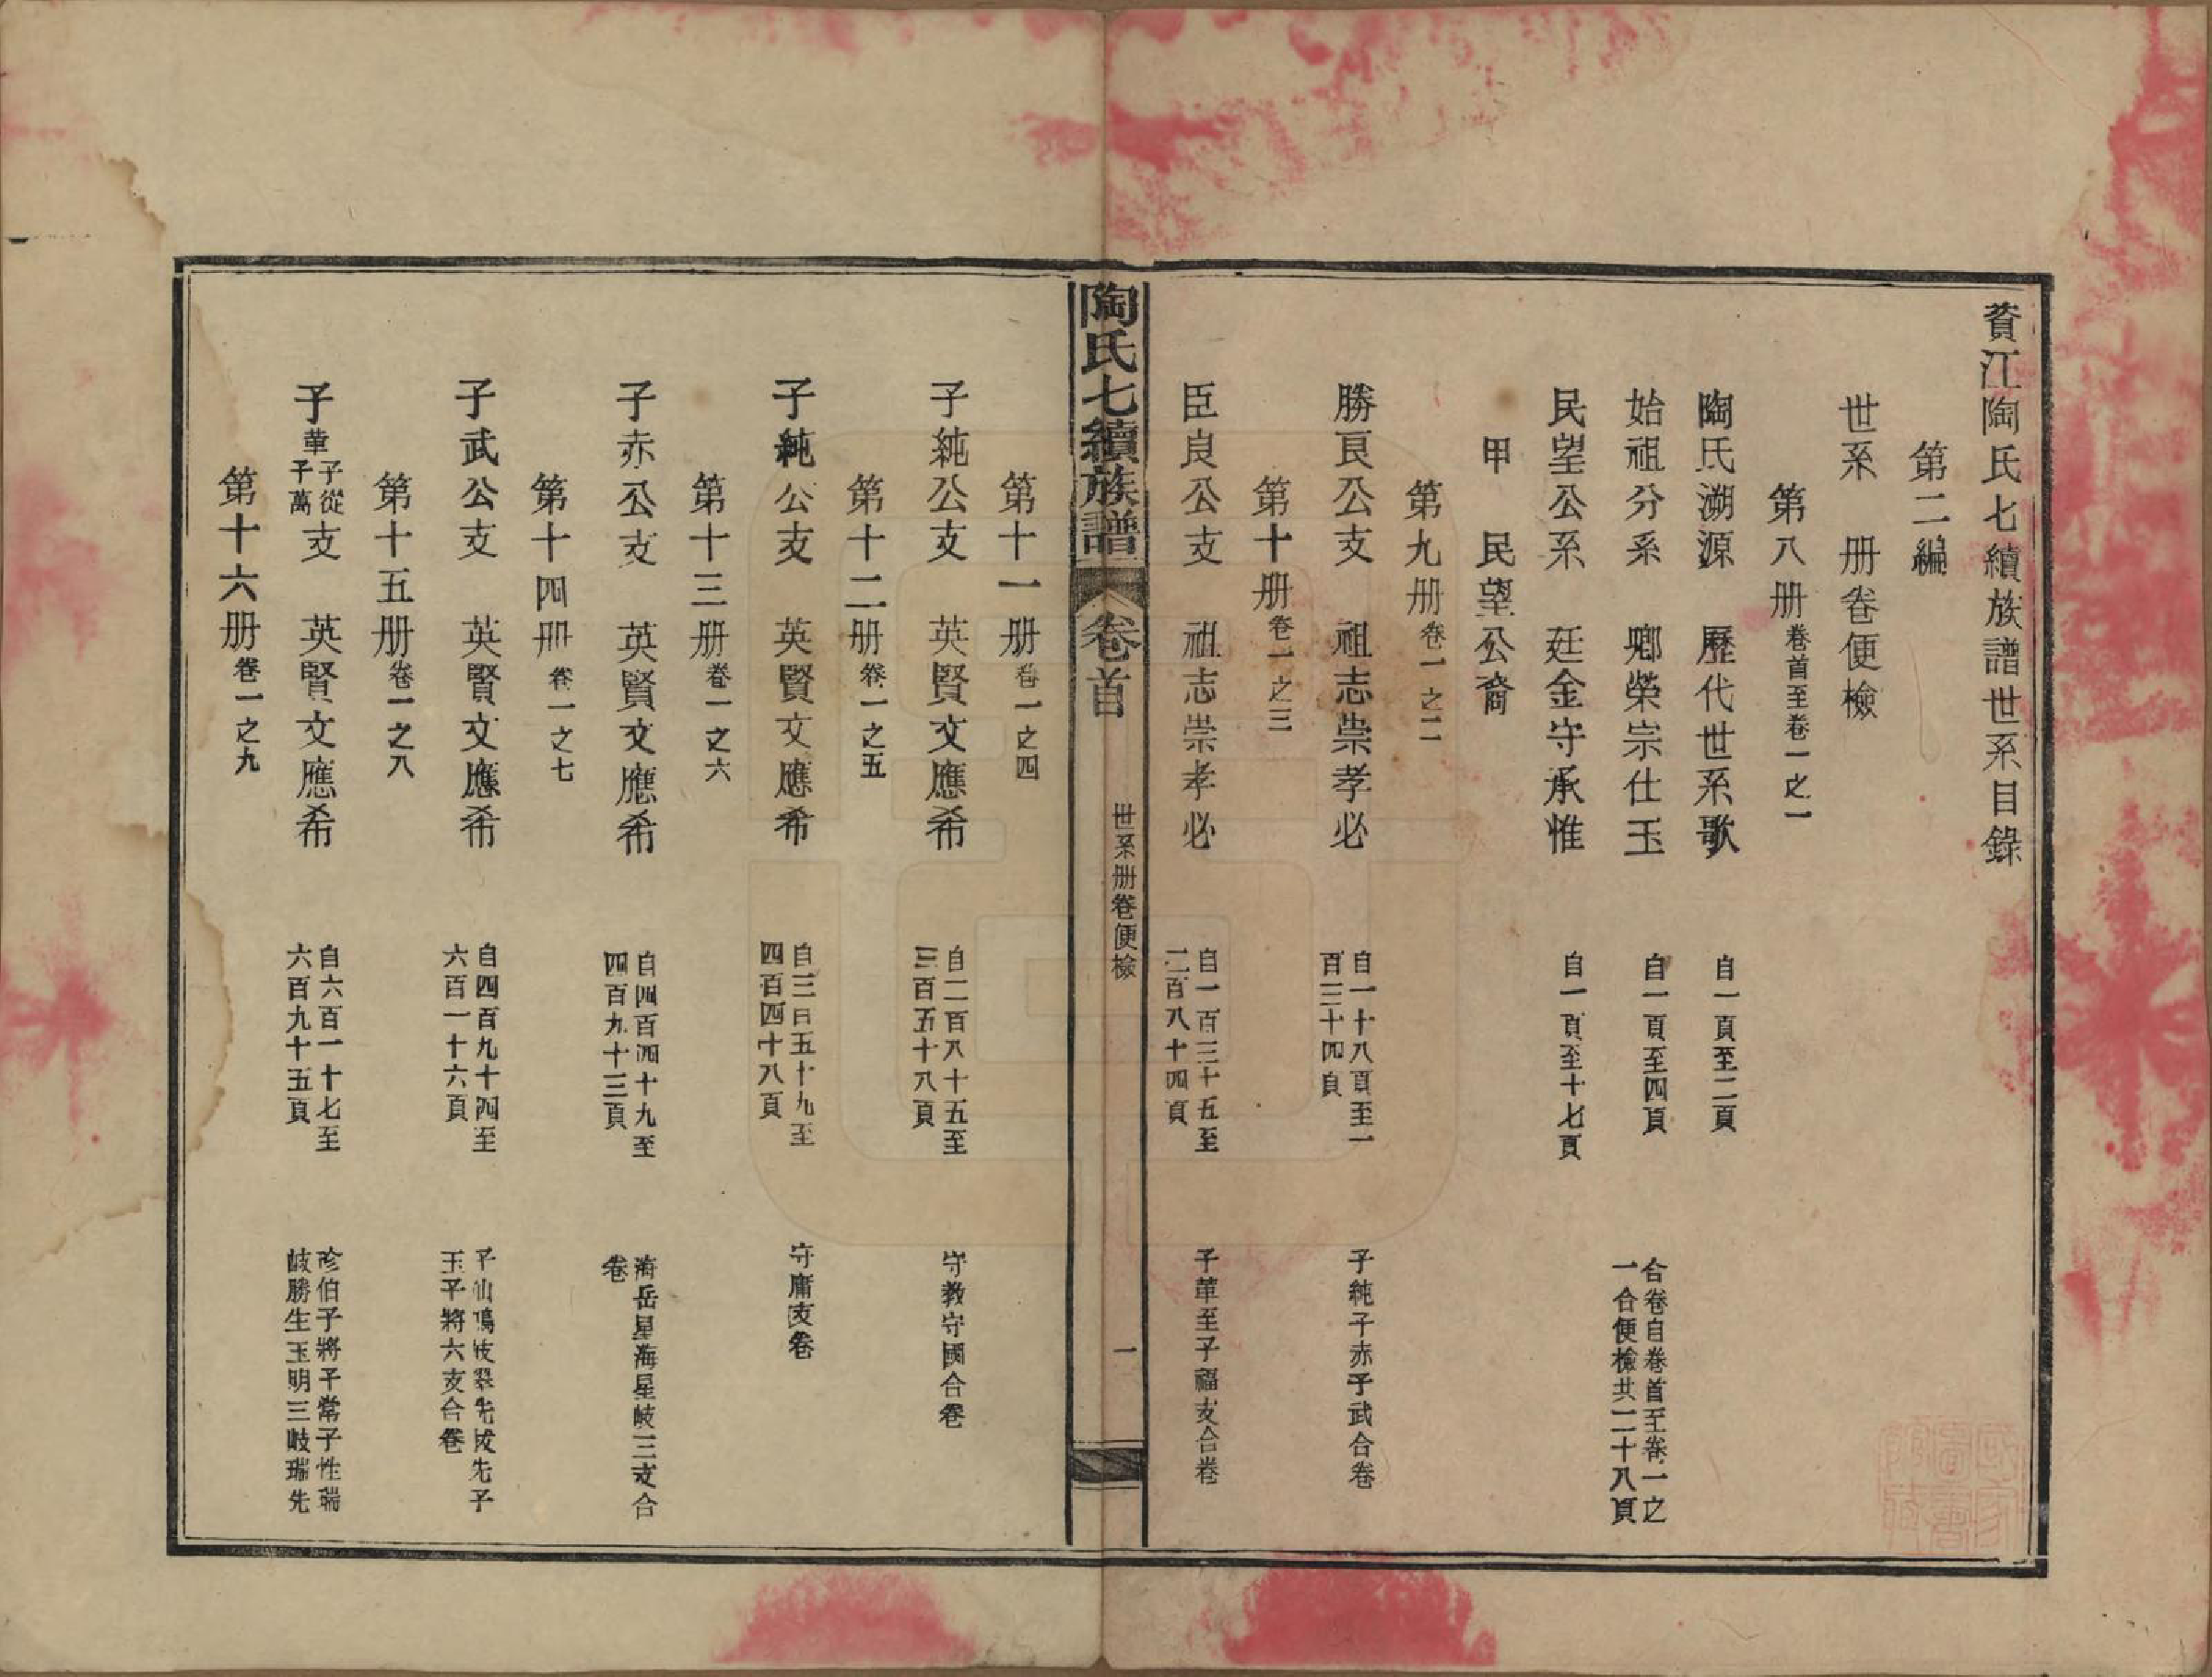 賨江陶氏七續族譜世系目錄
第二編
世系 册卷便檢
第八册卷首至卷一之一
陶氏溯源 歷代世系歌 自一頁至二頁
始祖分系 鄉榮宗仕玉 自一頁至四頁 合卷自卷首至卷一之一合便檢共二十八頁
民望公系 廷金守承惟 自一頁至十七頁
甲 民望公裔
第九册卷一之二
勝良公支 祖志崇孝必 自一十八頁至一百三十四頁 子純子赤子武合卷
第十册卷一之三
臣良公支 祖志崇孝必 自一百三十五至二百八十四頁 子華至子福支合卷
陶氏七續族譜 卷首 世系册卷便檢 一
第十一册卷一之四
子純公支 英賢文應希 自二百八十五至三百五十八頁 守教守國合卷
第十二册卷一之五
子純公支 英賢文應希 自三百五十九至四百四十八頁 守庸支卷
第十三册卷一之六
子赤公支 英賢文應希 自四百四十九至四百九十三頁 海岳星海星岐三支合卷
第十四册卷一之七
子武公支 英賢文應希 自四百九十四至六百一十六頁 子仙鳴岐翠先拔先子玉平將六支合卷
第十五册卷一之八
子華子從子萬支 英賢文應希 自六百一十七至六百九十五頁 珍伯子將平常子性瑞岐勝生玉明三岐瑞先
第十六册卷一之九